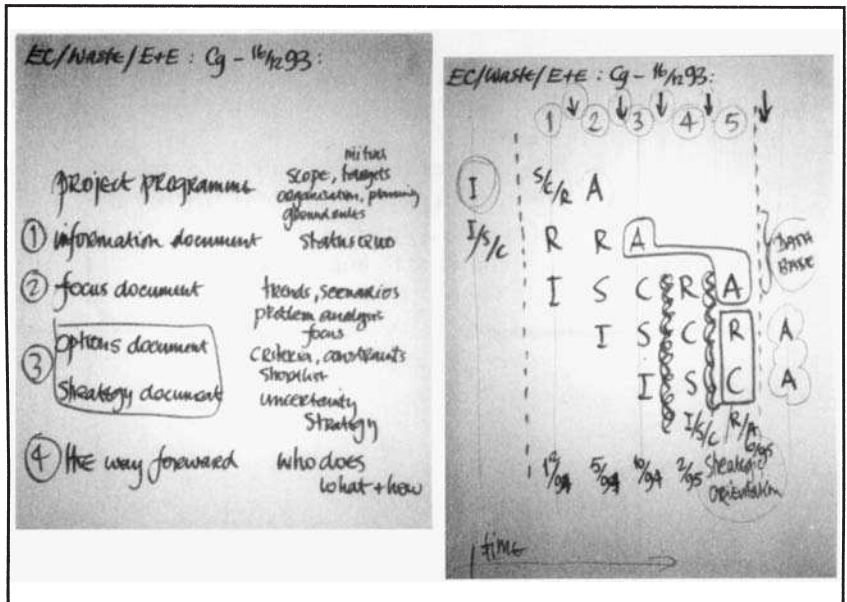 EC/Waste/E+E : Cg - 16/12 93:
project programme
scope, targets
organisation, planning
ground rules
① information document status quo
② focus document trends, scenarios
problem analysis
focus
③ options document criteria, constraints
shortlist
strategy document uncertainty
strategy
④ the way forward who does
what + how
EC/Waste/E+E : Cg - 16/12 93:
1 2 3 4 5
I S/C/R A
I/S/C R R A DATA
BASE
I S C R A
I S C R A
I S C A
I/S/C R/A
5/94 10/94 2/95 6/95
strategic
orientation
time